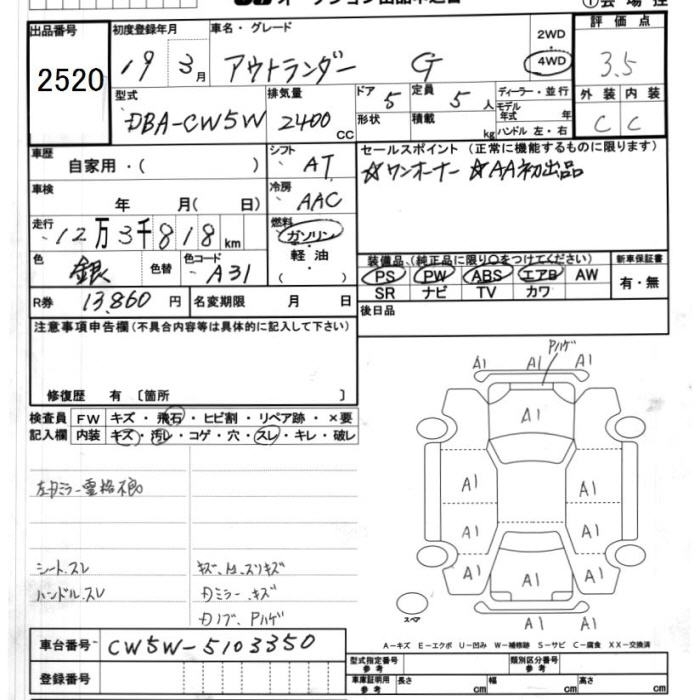 出品番号 初度登録年月 車名・グレード 2WD 評価点
2520 19年 3月 アウトランダー G 4WD 3.5
型式 排気量 ドア 定員 ディーラー・並行 外装 内装
DBA-CW5W 2400 CC 5 5人 モデル年式 年 C C
形状 積載 kg ハンドル 左・右
車歴 自家用・( ) シフト AT セールスポイント (正常に機能するものに限ります)
車検 年 月( 日) 冷房 AAC ☆ワンオーナー ☆AA初出品
走行 12万3千818km 燃料 ガソリン・軽油・( )
色 銀 色替 色コード A31 装備品 (純正品に限り○をつけてください) 新車保証書
PS PW ABS エアB AW 有・無
SR ナビ TV カワ
R券 13,860円 名変期限 月 日 後日品
注意事項申告欄 (不具合内容等は具体的に記入して下さい)
修復歴 有 〔箇所 〕
検査員 FW キズ・飛石・ヒビ割・リペア跡・×要
記入欄 内装 キズ・汚レ・コゲ・穴・スレ・キレ・破レ
シート.スレ
ハンドル.スレ
Pハゲ
A1 A1 A1
A1
A1 A1
A1 A1
A1 A1 A1
A1 A1
スペア
A-キズ E-エクボ U-凹み W-補修跡 S-サビ C-腐食 XX-交換済
車台番号 CW5W-5103350
登録番号
型式指定番号 参考 類別区分番号 参考
車庫証明用 参考 長さ cm 幅 cm 高さ cm